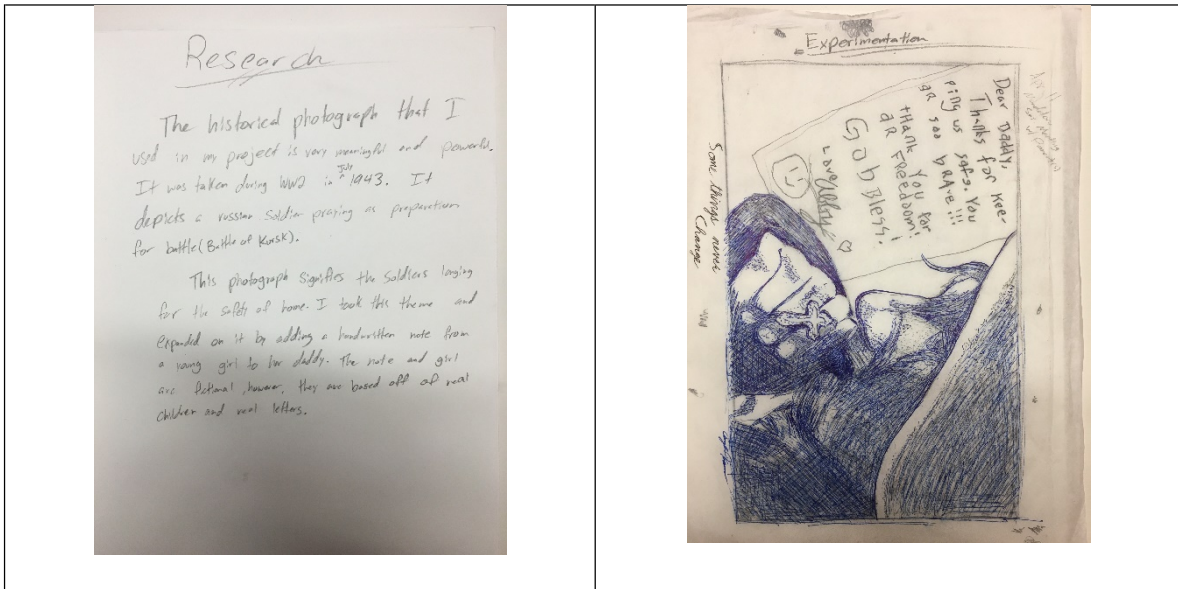 Research
The historical photograph that I
used in my project is very meaningful and powerful.
It was taken during WW2 in July 1943. It
depicts a russian soldier praying as preparation
for battle (Battle of Kursk).
This photograph signifies the soldiers longing
for the safety of home. I took this theme and
expanded on it by adding a handwritten note from
a young girl to her daddy. The note and girl
are fictional, however, they are based off of real
children and real letters.
Experimentation
Dear Daddy,
Thanks for Kee-
ping us safe. You
aR soo bRAve !!!
tHank You for
aR FReedom!
Gob Bless!
Love
Some things never
Change